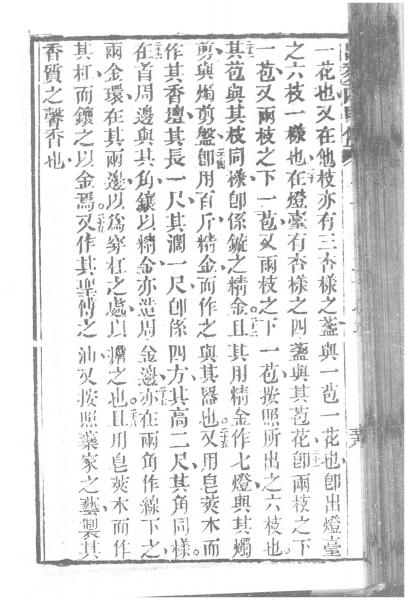 一花也又在他枝亦有三杏樣之盞與一苞一花也卽出燈臺
之六枝一樣也在燈臺有杏樣之四盞與其苞花卽兩枝之下
一苞又兩枝之下一苞又兩枝之下一苞按照所出之六枝也
其苞與其枝同樣卽係鏇之精金且其用精金作七燈與其燭
剪與燭剪盤卽用百斤精金而作之與其器也又用皂莢木而
作其香壇其長一尺其濶一尺卽係四方其高二尺其角同樣
在首周邊與其角鑲以精金亦造周金邊亦在兩角作線下之
兩金環在其兩邊以爲穿杠之處以擔之也且用皂莢木而作
其杠而鑲之以金焉又作其聖傅之油又按照藥家之藝製其
香質之馨香也